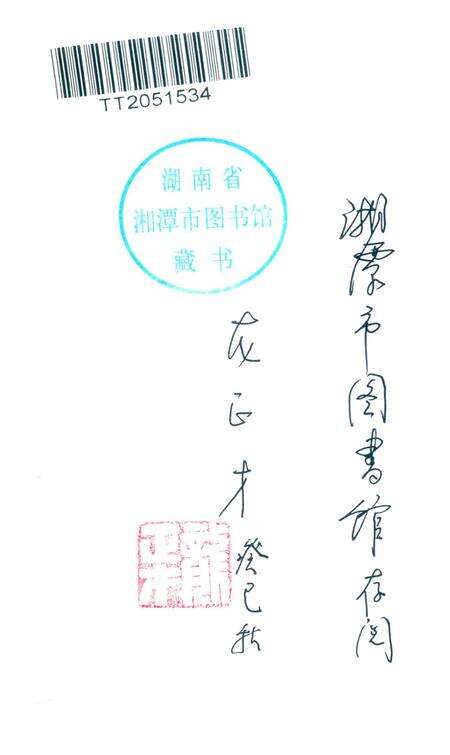 TT2051534
湖南省
湘潭市图书馆
藏书
湘潭市图書馆存阅
龙正才
癸巳秋